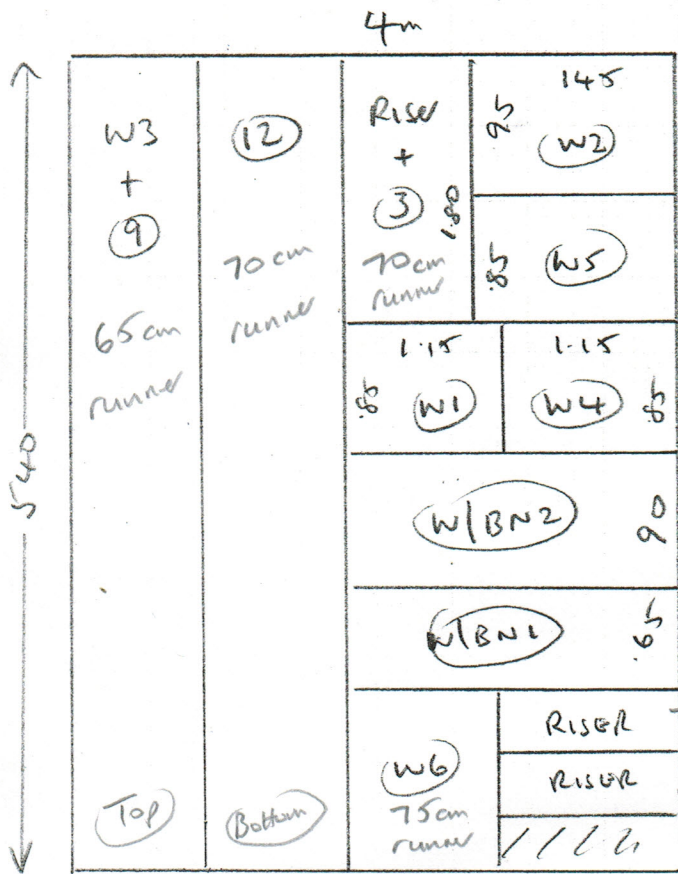 4m
540
W3
+
9
65cm
runner
Top
12
70cm
runner
Bottom
Riser
+
3
1.80
70cm
runner
145
95
W2
.85
W5
1.15
.85
W1
1.15
W4
.85
W/BN2
90
W/BN1
.65
W6
75cm
runner
RISER
RISER